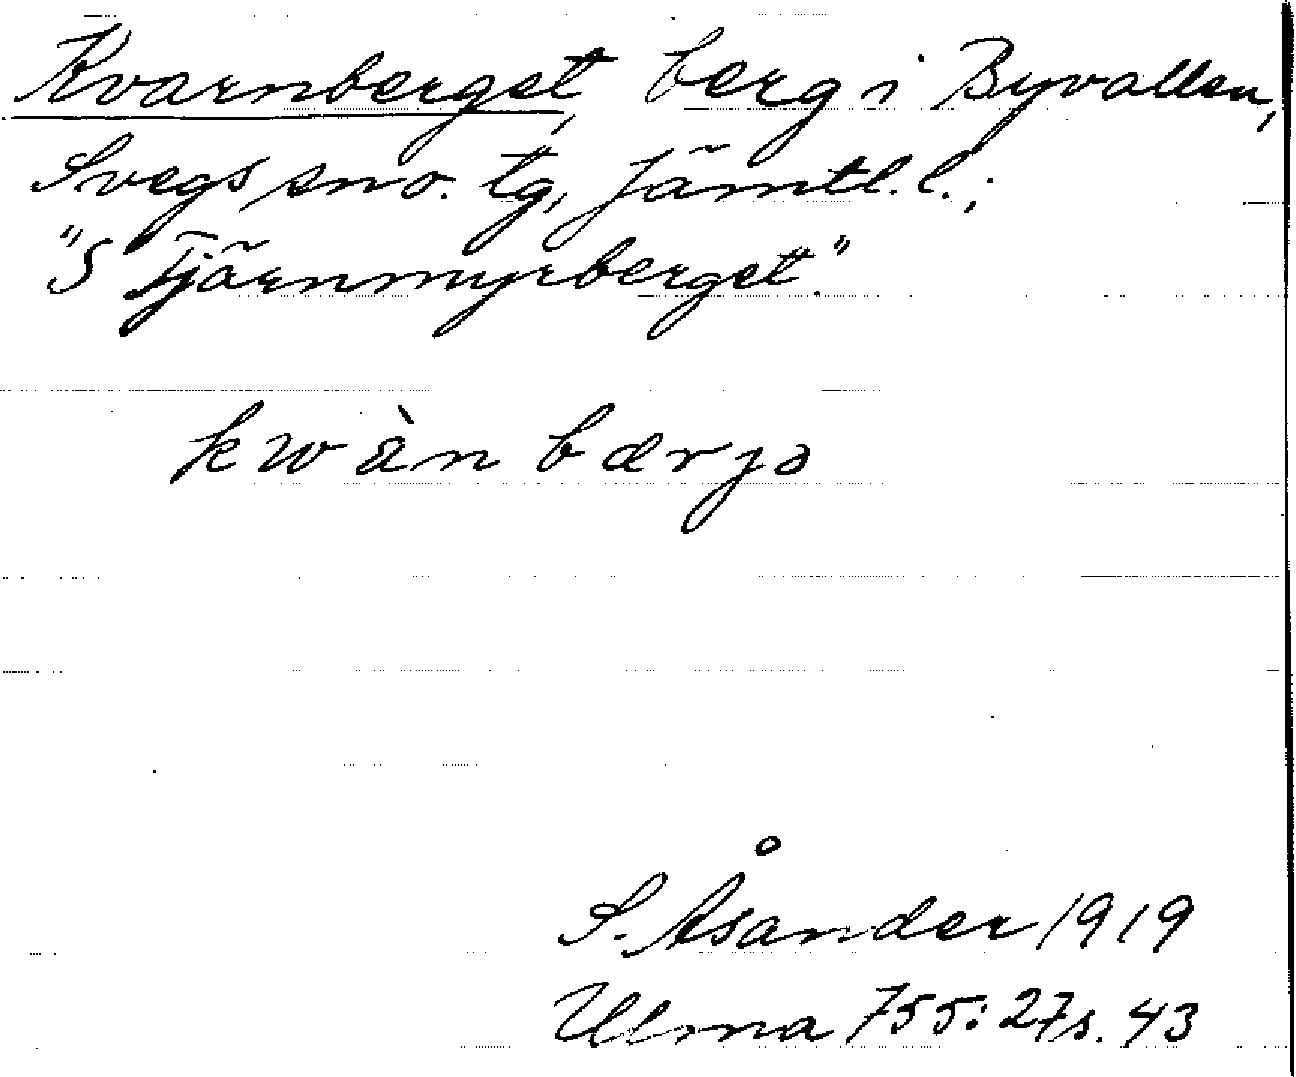 Kvarnberget, berg i Byvallen,
Svegs sno. tg, Jämtl. l.;
"S Tjärnmyrberget".
kwànbærjə
S. Åsander 1919
Ulma 755:27 s. 43